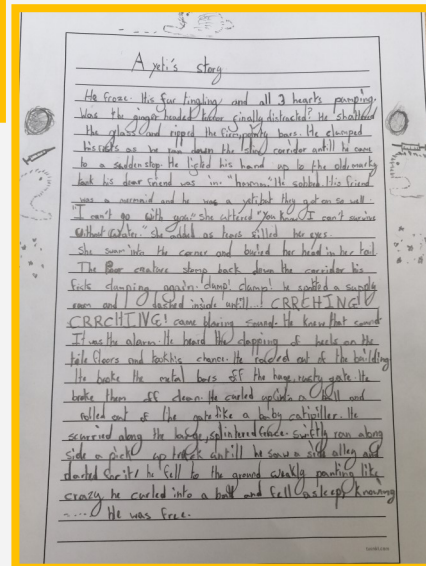 A yeti's story
He froze. His fur tingling and all 3 hearts pumping.
Was the ginger headed finally distracted? He shattered
the glass and ripped the bars. He clumped
his fists as he ran down the corridor untill he came
to a sudden stop. He lifted his hand up to the old, murky
tank his dear friend was in. He sobbed. His friend
was a mermaid and he was a yeti but they got on so well.
"I can't go with you," She uttered "You know I can't survive
without water." She added as tears filled her eyes.
She swam into the corner and buried her head in her tail.
The Poor creature stomp back down the corridor his
fists clumping again. clump! clump! he spotted a supply
room and dashed inside untill... CRRCHING!
CRRCHING! came blaring sound. He knew that sound
It was the alarm. He heard the clapping of heels on the
tile floors and took his chance. He raced out of the building
He broke the metal bars off the huge, rusty gate. He
broke them off clean. He curled up into a ball and
rolled out of the gate like a baby catipiller. He
scurried along the large, splintered fence. Swiftly ran along
side a track untill he saw a side alley and
darted for it/ he fell to the ground weakly panting like
crazy he curled into a ball and fell asleep knowing
..... He was free.